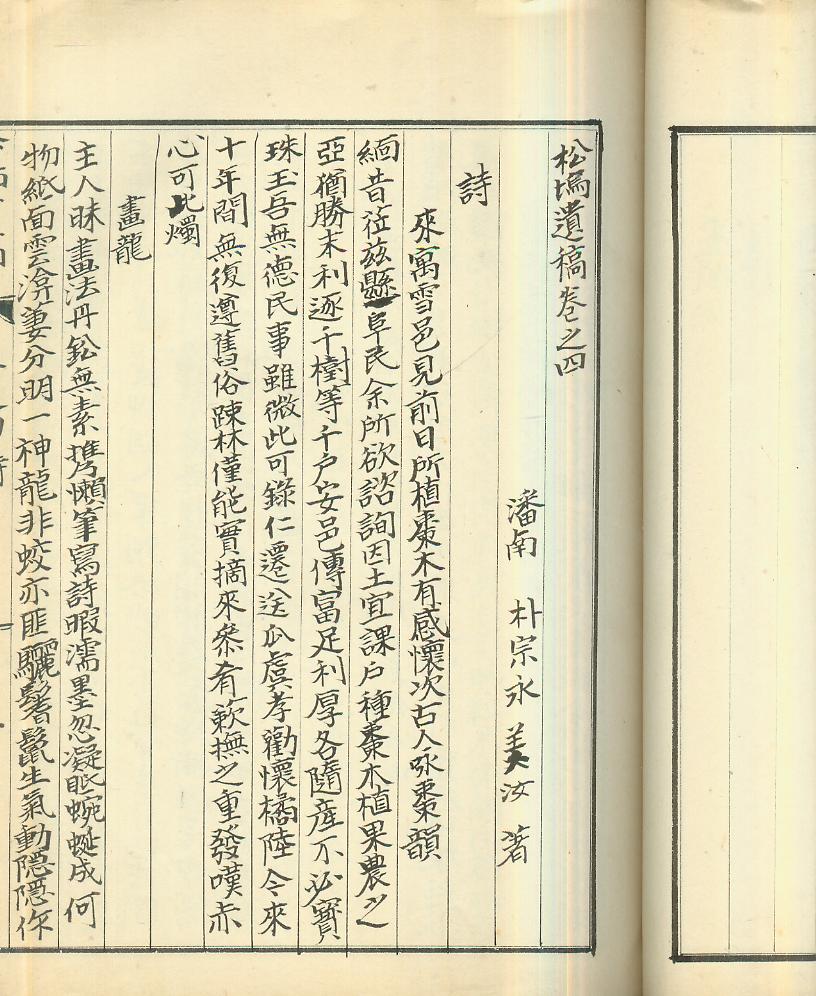 松塢遺稿卷之四
潘南 朴宗永 美汝 著
詩
來寓雪邑見前日所植棗木有感懷次古人咏棗韻
緬昔莅玆縣阜民余所欲諮詢因土宜課戶種棗木植果農之
亞猶勝末利逐千樹等千戶安邑傳富足利厚各隨産不必寶
珠玉吾無德民事雖微此可錄仁遷送瓜虞孝勸懷橘陸今來
十年間無復遵舊俗踈林僅能實摘來叅肴蔌撫之重發嘆赤
心可此燭
畫龍
主人昧畫法丹鈆無素携懶筆寫詩暇濡墨忽凝眂蜿蜒成何
物紙面雲渰萋分明一神龍非蛟亦匪驪鬐鬣生氣動隱隱作